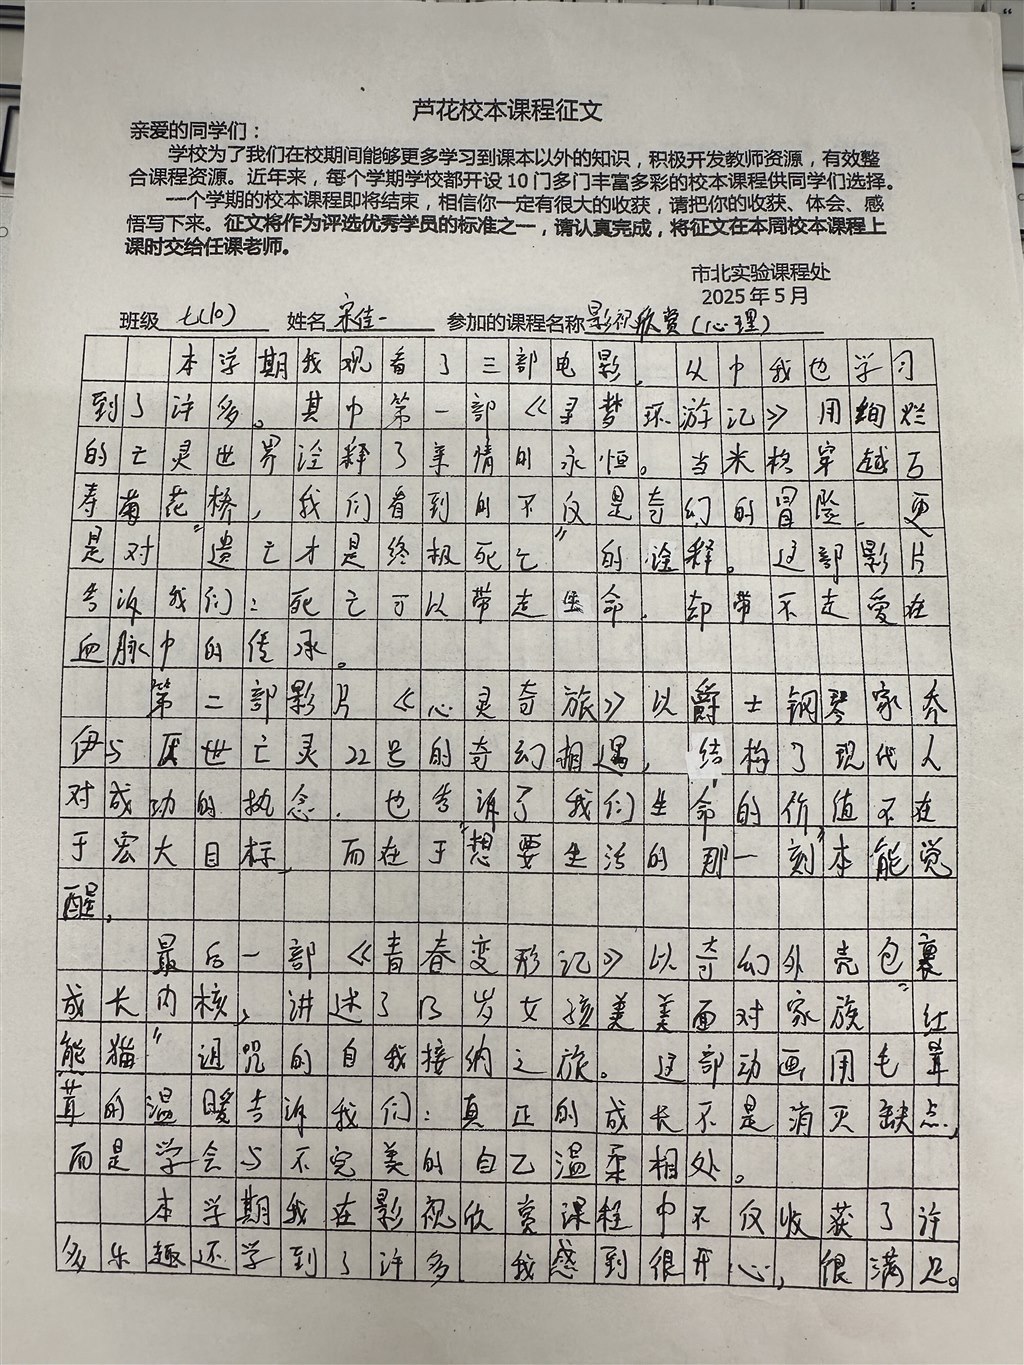 芦花校本课程征文
亲爱的同学们：
学校为了我们在校期间能够更多学习到课本以外的知识，积极开发教师资源，有效整
合课程资源。近年来，每个学期学校都开设 10 门多门丰富多彩的校本课程供同学们选择。
一个学期的校本课程即将结束，相信你一定有很大的收获，请把你的收获、体会、感
悟写下来。征文将作为评选优秀学员的标准之一，请认真完成，将征文在本周校本课程上
课时交给任课老师。
市北实验课程处
2025 年 5 月
班级 七(10) 姓名 宋佳一 参加的课程名称 影视欣赏(心理)
本学期我观看了三部电影，从中我也学习
到了许多。其中第一部《寻梦环游记》用绚烂
的亡灵世界诠释了亲情的永恒。当米格穿越万
寿菊花桥，我们看到的不仅是奇幻的冒险，更
是对“遗亡才是终极死亡”的诠释。这部影片
告诉我们：死亡可以带走生命，却带不走爱在
血脉中的传承。
第二部影片《心灵奇旅》以爵士钢琴家乔
伊与厌世亡灵22号的奇幻相遇，结构了现代人
对成功的执念，也告诉了我们生命的价值不在
于宏大目标，而在于“想要生活的那一刻”本能觉
醒，
最后一部《青春变形记》以奇幻外壳包裹
成长内核，讲述了13岁女孩美美面对家族“红
熊猫”诅咒的自我接纳之旅。这部动画用毛茸
茸的温暖告诉我们：真正的成长不是消灭缺点，
而是学会与不完美的自己温柔相处。
本学期我在影视欣赏课程中不仅收获了许
多乐趣还学到了许多，我感到很开心，很满足。